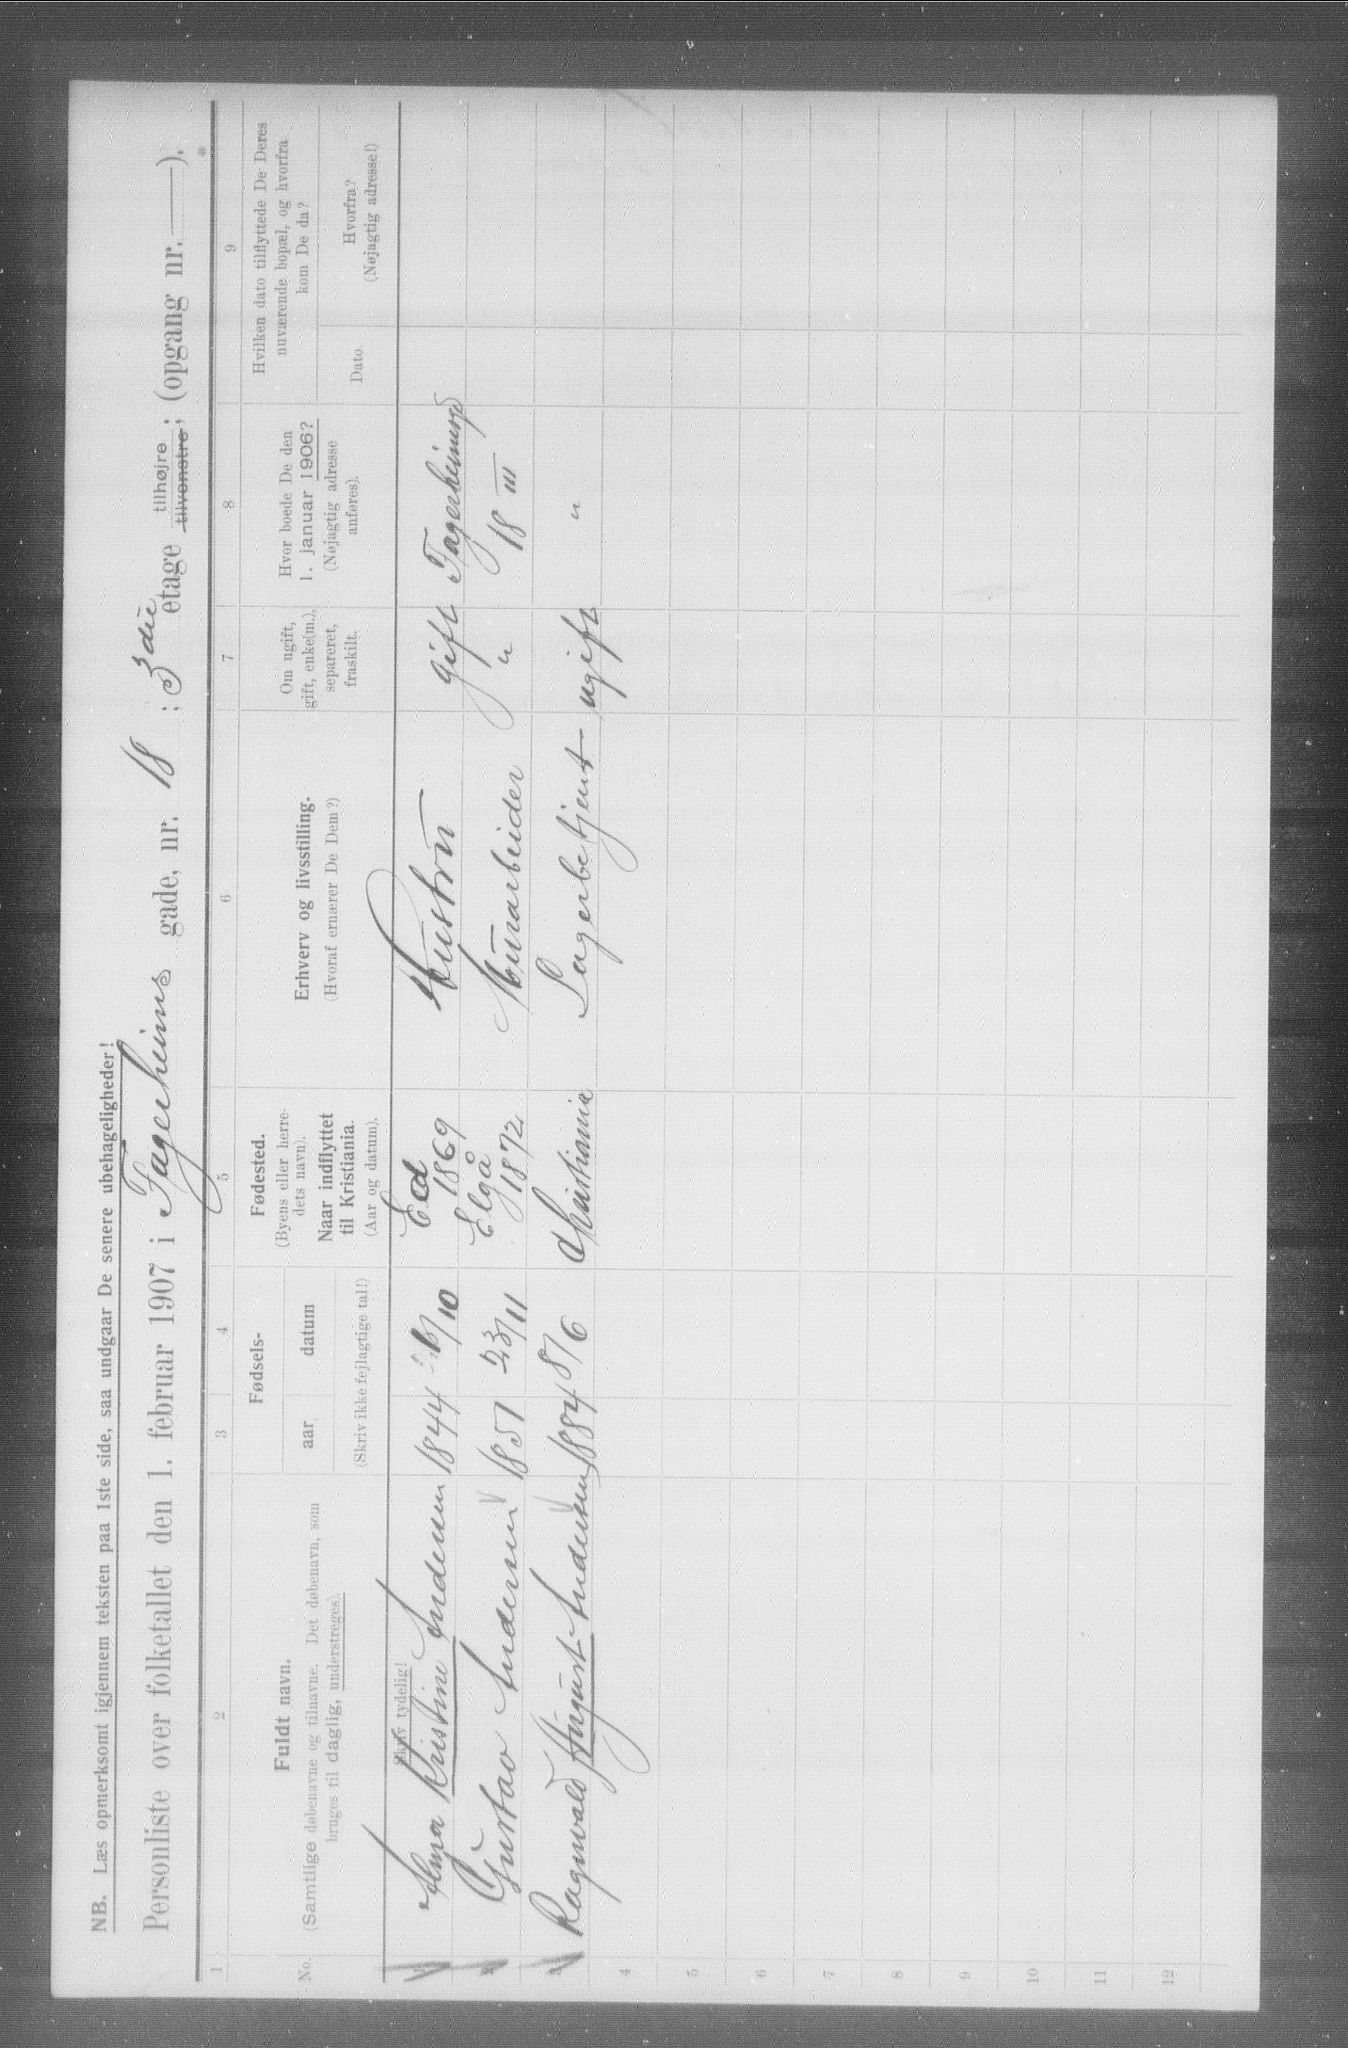 NB. Læs opmerksomt igjennem teksten paa 1ste side, saa undgaar De senere ubehageligheder!
Personliste over folketallet den 1. februar 1907 i Fagerheims gade, nr. 18 ; 3die etage tilhøjre ; tilvenstre ; (opgang nr. ——).
1 2 3 4 5 6 7 8 9
No.
Fuldt navn.
(Samtlige døbenavne og tilnavne. Det døbenavn, som
bruges til daglig, understreges).
Fødsels-
aar datum
(Skriv ikke fejlagtige tal!)
Fødested.
(Byens eller herre-
dets navn).
Naar indflyttet
til Kristiania.
(Aar og datum).
Erhverv og livsstilling.
(Hvoraf ernærer De Dem?)
Om ugift,
gift, enke(m.),
separeret,
fraskilt.
Hvor boede De den
1. januar 1906?
(Nøjagtig adresse
anføres).
Hvilken dato tilflyttede De Deres
nuværende bopæl, og hvorfra
kom De da?
Dato.
Hvorfra?
(Nøjagtig adresse!)
Skriv tydelig!
1 Kristine Andersen 1844 /10 Ed 1869 Hustru gift Fagerheimsgd
2 Gustav Andersen 1851 23/11 Elgå 1872 Murarbeider " 18 III
3 Ragnvald August Andersen 1884 8/6 Christiania Lagerbetjent ugift "
4
5
6
7
8
9
10
11
12